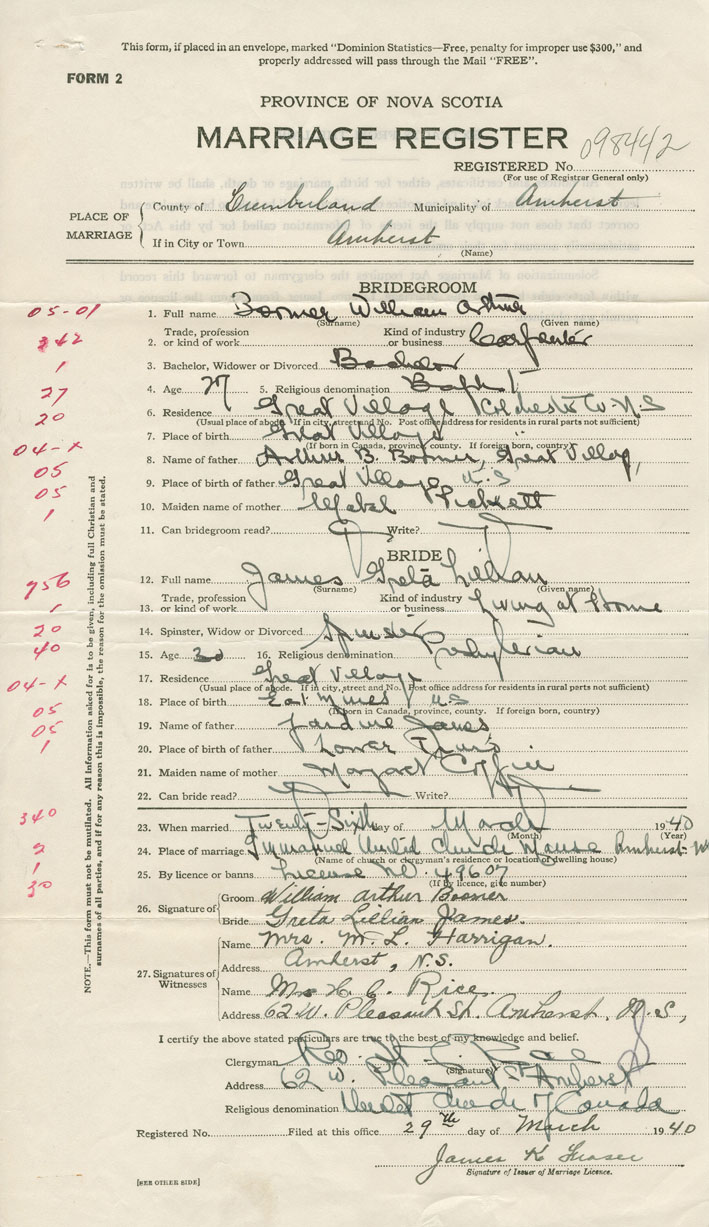 This form, if placed in an envelope, marked "Dominion Statistics—Free, penalty for improper use $300," and
properly addressed will pass through the Mail "FREE".
FORM 2
PROVINCE OF NOVA SCOTIA
MARRIAGE REGISTER
098442
REGISTERED No.
(For use of Registrar General only)
PLACE OF MARRIAGE
County of Cumberland Municipality of Amherst
If in City or Town Amherst
(Name)
BRIDEGROOM
05-01
1. Full name Boomer William Arthur
(Surname) (Given name)
342
2. Trade, profession or kind of work Kind of industry or business Carpenter
1
3. Bachelor, Widower or Divorced Bachelor
27
4. Age 27 5. Religious denomination Baptist
20
6. Residence Great Village Colchester Co. N.S
(Usual place of abode. If in city, street and No. Post office address for residents in rural parts not sufficient)
04-x
7. Place of birth Great Village
(If born in Canada, province, county. If foreign born, country)
05
8. Name of father Arthur B. Boomer, Great Village,
05
9. Place of birth of father Great Village N.S
1
10. Maiden name of mother Mabel Pickett
11. Can bridegroom read? Write?
BRIDE
756
12. Full name James Greta Lillian
(Surname) (Given name)
1
13. Trade, profession or kind of work Kind of industry or business Living at Home
20
14. Spinster, Widow or Divorced Spinster
40
15. Age 30 16. Religious denomination Presbyterian
17. Residence Great Village
(Usual place of abode. If in city, street and No. Post office address for residents in rural parts not sufficient)
04-x
18. Place of birth East Mines N.S
(If born in Canada, province, county. If foreign born, country)
05
19. Name of father Jardine James
05
20. Place of birth of father Lower
1
21. Maiden name of mother Margaret
22. Can bride read? Write?
340
23. When married Twenty-Sixth day of March 1940
(Month) (Year)
2
24. Place of marriage Immanuel United Church Manse Amherst
(Name of church or clergyman's residence or location of dwelling house)
1
25. By licence or banns License No. 49607
(If by licence, give number)
30
26. Signature of
Groom William Arthur Boomer
Bride Greta Lillian James.
27. Signatures of Witnesses
Name Mrs. M. L. Harrigan.
Address Amherst, N.S.
Name Mrs H. C. Rice.
Address 62 W. Pleasant St. Amherst, N.S,
I certify the above stated particulars are true to the best of my knowledge and belief.
Clergyman Rev. H. C. Rice
(Signature)
Address 62 W. Pleasant St Amherst
Religious denomination United Church of Canada
Registered No. Filed at this office 29th day of March 1940
James K Fraser
Signature of Issuer of Marriage Licence.
[SEE OTHER SIDE]
NOTE.—This form must not be mutilated. All Information asked for is to be given, including full Christian and
surnames of all parties, and if for any reason this is impossible, the reason for the omission must be stated.